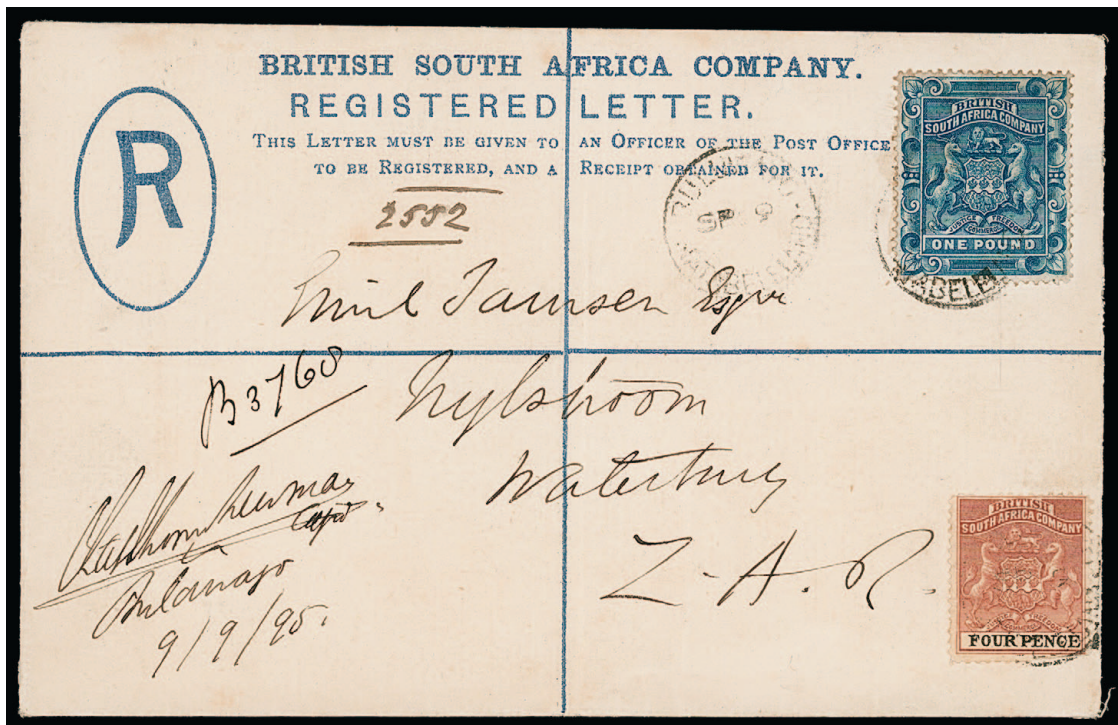 BRITISH SOUTH AFRICA COMPANY.
REGISTERED LETTER.
THIS LETTER MUST BE GIVEN TO AN OFFICER OF THE POST OFFICE
TO BE REGISTERED, AND A RECEIPT OBTAINED FOR IT.
R
2552
BRITISH
SOUTH AFRICA COMPANY
JUSTICE FREEDOM
COMMERCE
ONE POUND
SP 9
Emil Tamsen Esqre
B3768
Nylstroom
Waterburg
Z. A. R.
Capt
Bulawayo
9/9/95.
BRITISH
SOUTH AFRICA COMPANY
FOUR PENCE